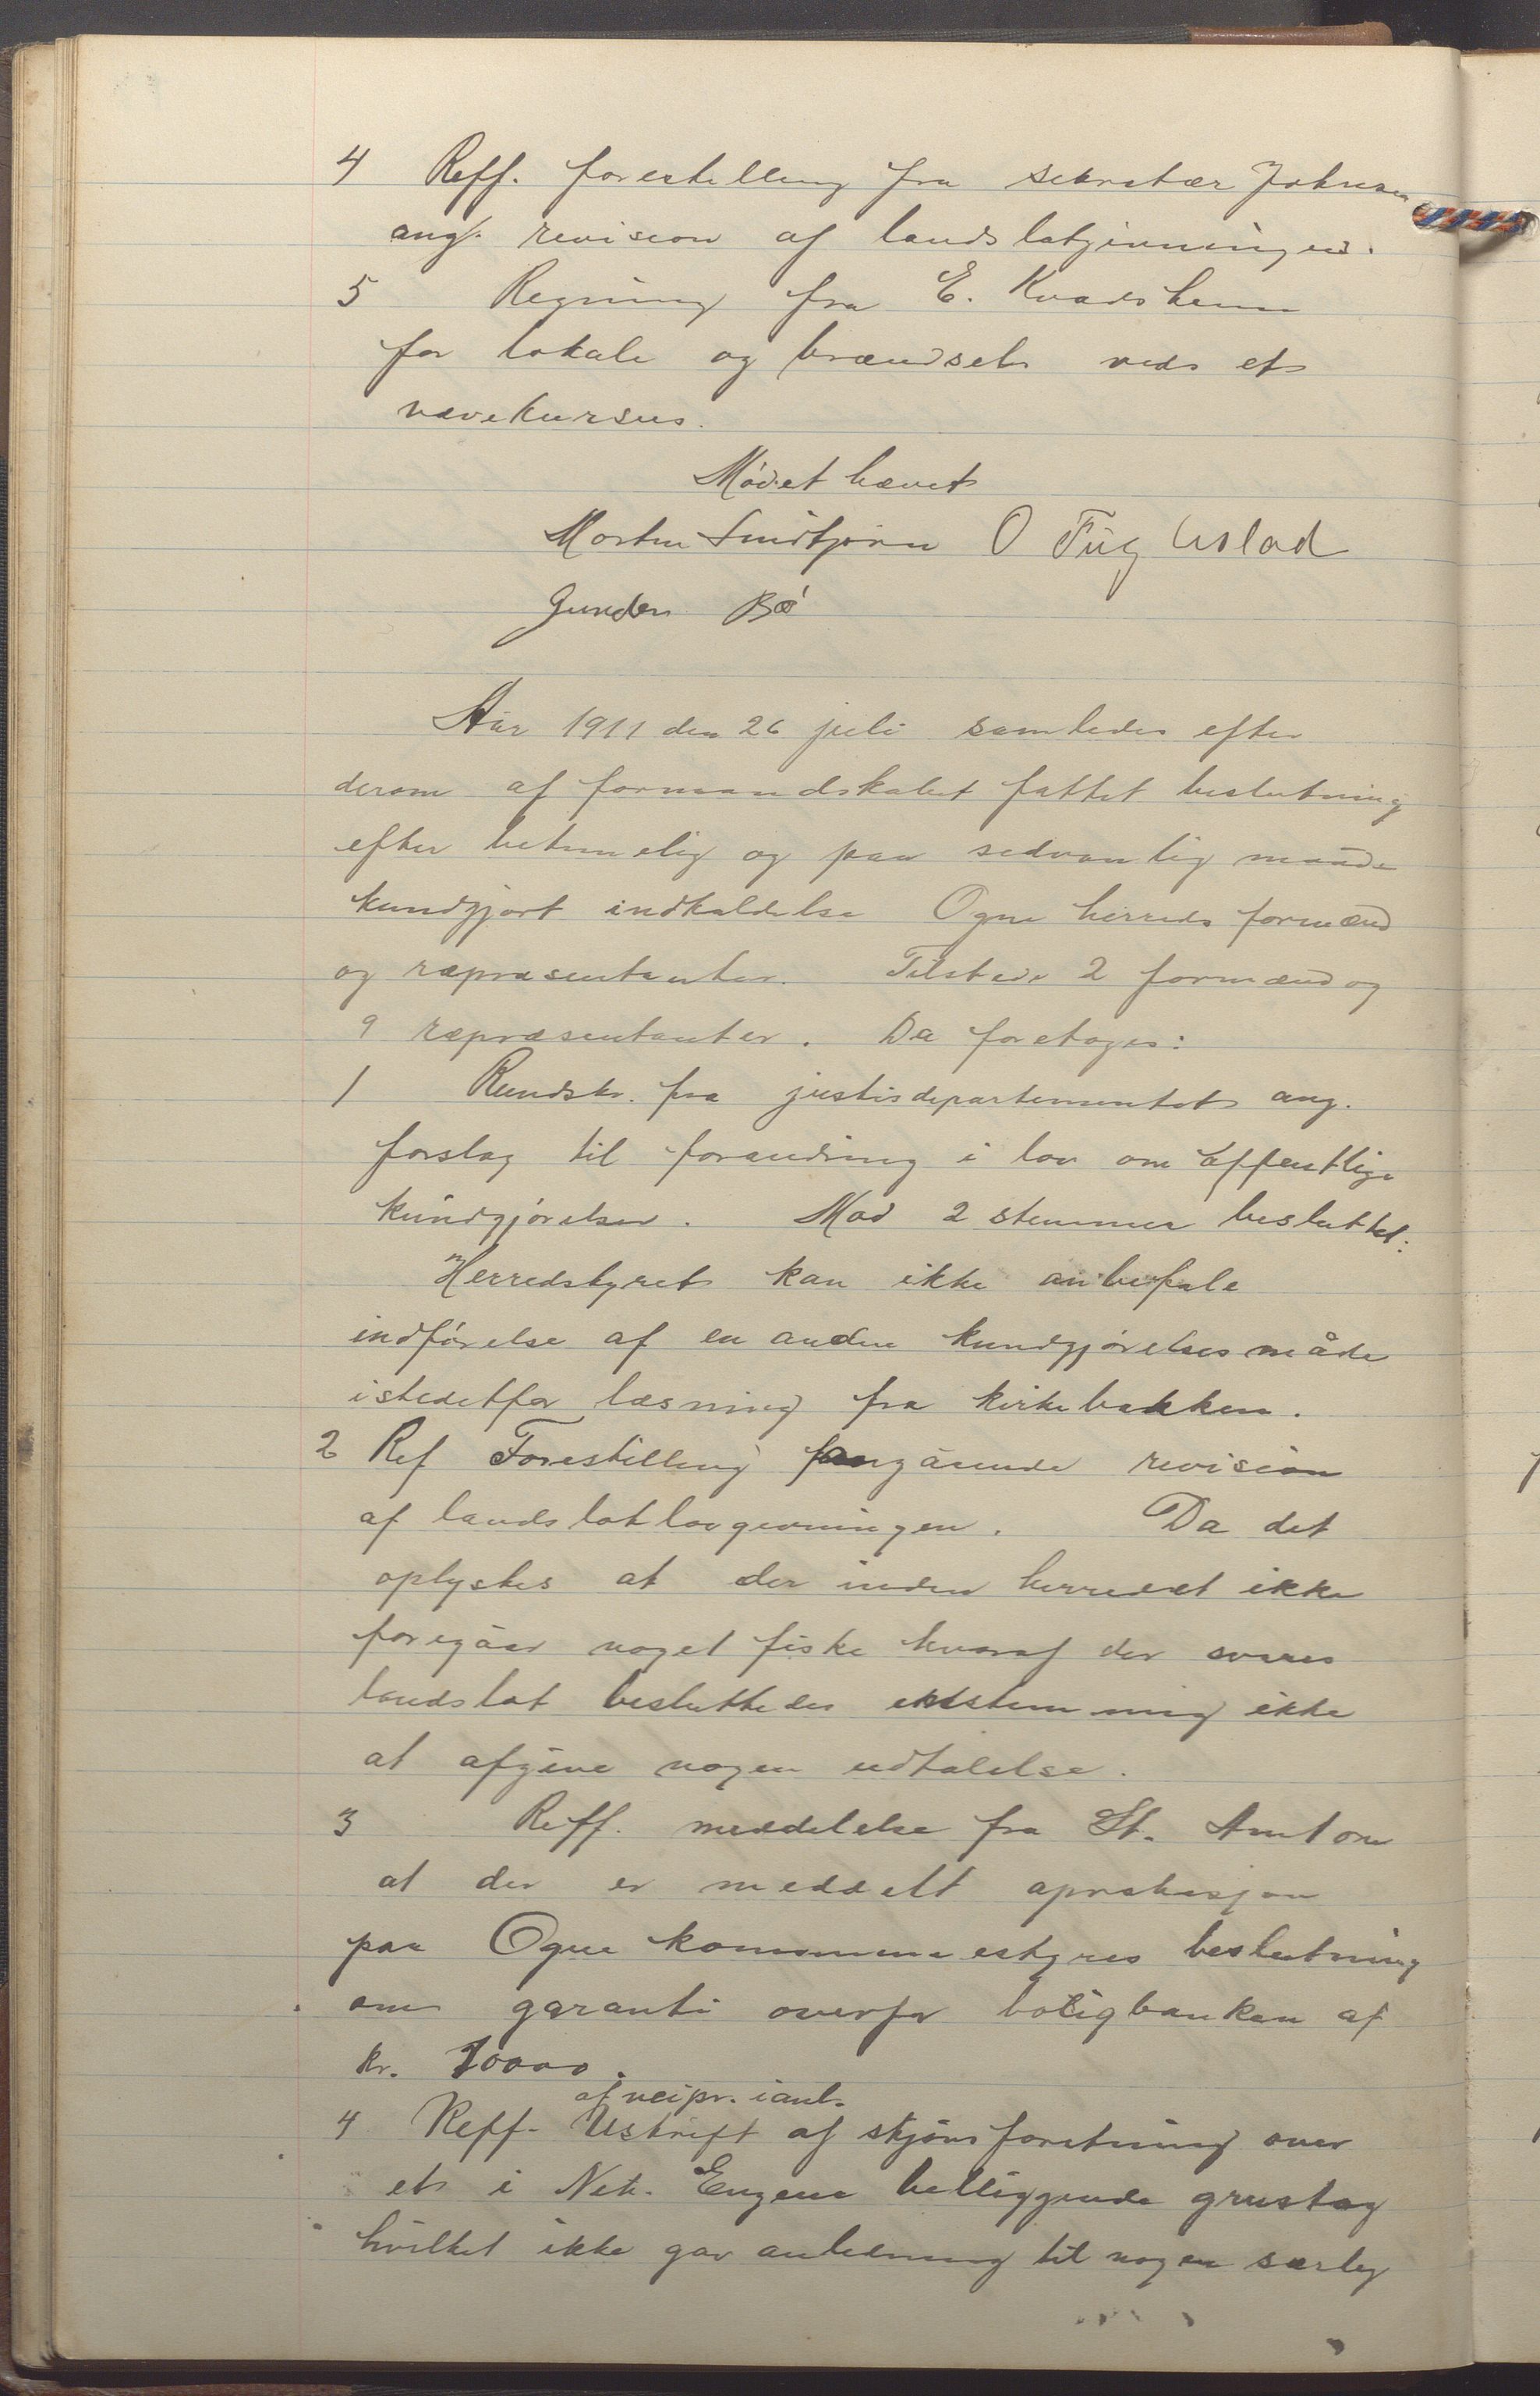 4 Reff. forestilling fra sekretær Johnsen
ang. revision af landslotgivningen.
5 Regning fra E. Kvadsheim
for lokale og brændsel ved et
vævekursus.
Mødet hævet
Morten O Fuglestad
Gunder Bø
Aar 1911 den 26 juli samledes efter
derom af formandskabet fattet beslutning
efter betimelig og paa sedvanlig maade
kundgjort indkaldelse Ogne herreds formænd
og repræsentanter. Tilstede 2 formænd og
9 repræsentanter. Da foretoges:
1 Rundskr. fra justisdepartementet ang.
forslag til forandring i lov om offentlige
kundgjørelser. Mod 2 stemmer besluttet:
"Herredstyret kan ikke anbefale
indførelse af en anden kundgjørelsesmåde
istedetfor læsning fra kirkebakken.
2 Ref Forestilling angående revision
af landslotlovgivningen. Da det
oplystes at der inden herredet ikke
foregåar noget fiske hvoraf der svares
landslot besluttedes enstemmig ikke
at afgive nogen udtalelse.
3 Reff. meddelelse fra St. Amt om
at der er meddelt aprobasjon
paa Ogne kommunestyres beslutning
om garanti overfor boligbanken af
kr. 10000.
af veipr. ianl.
4 Reff. Utskrift af skjønsforretning over
et i Net. Eugene beliggende grustag
hvilket ikke gav anledning til nogen særlig